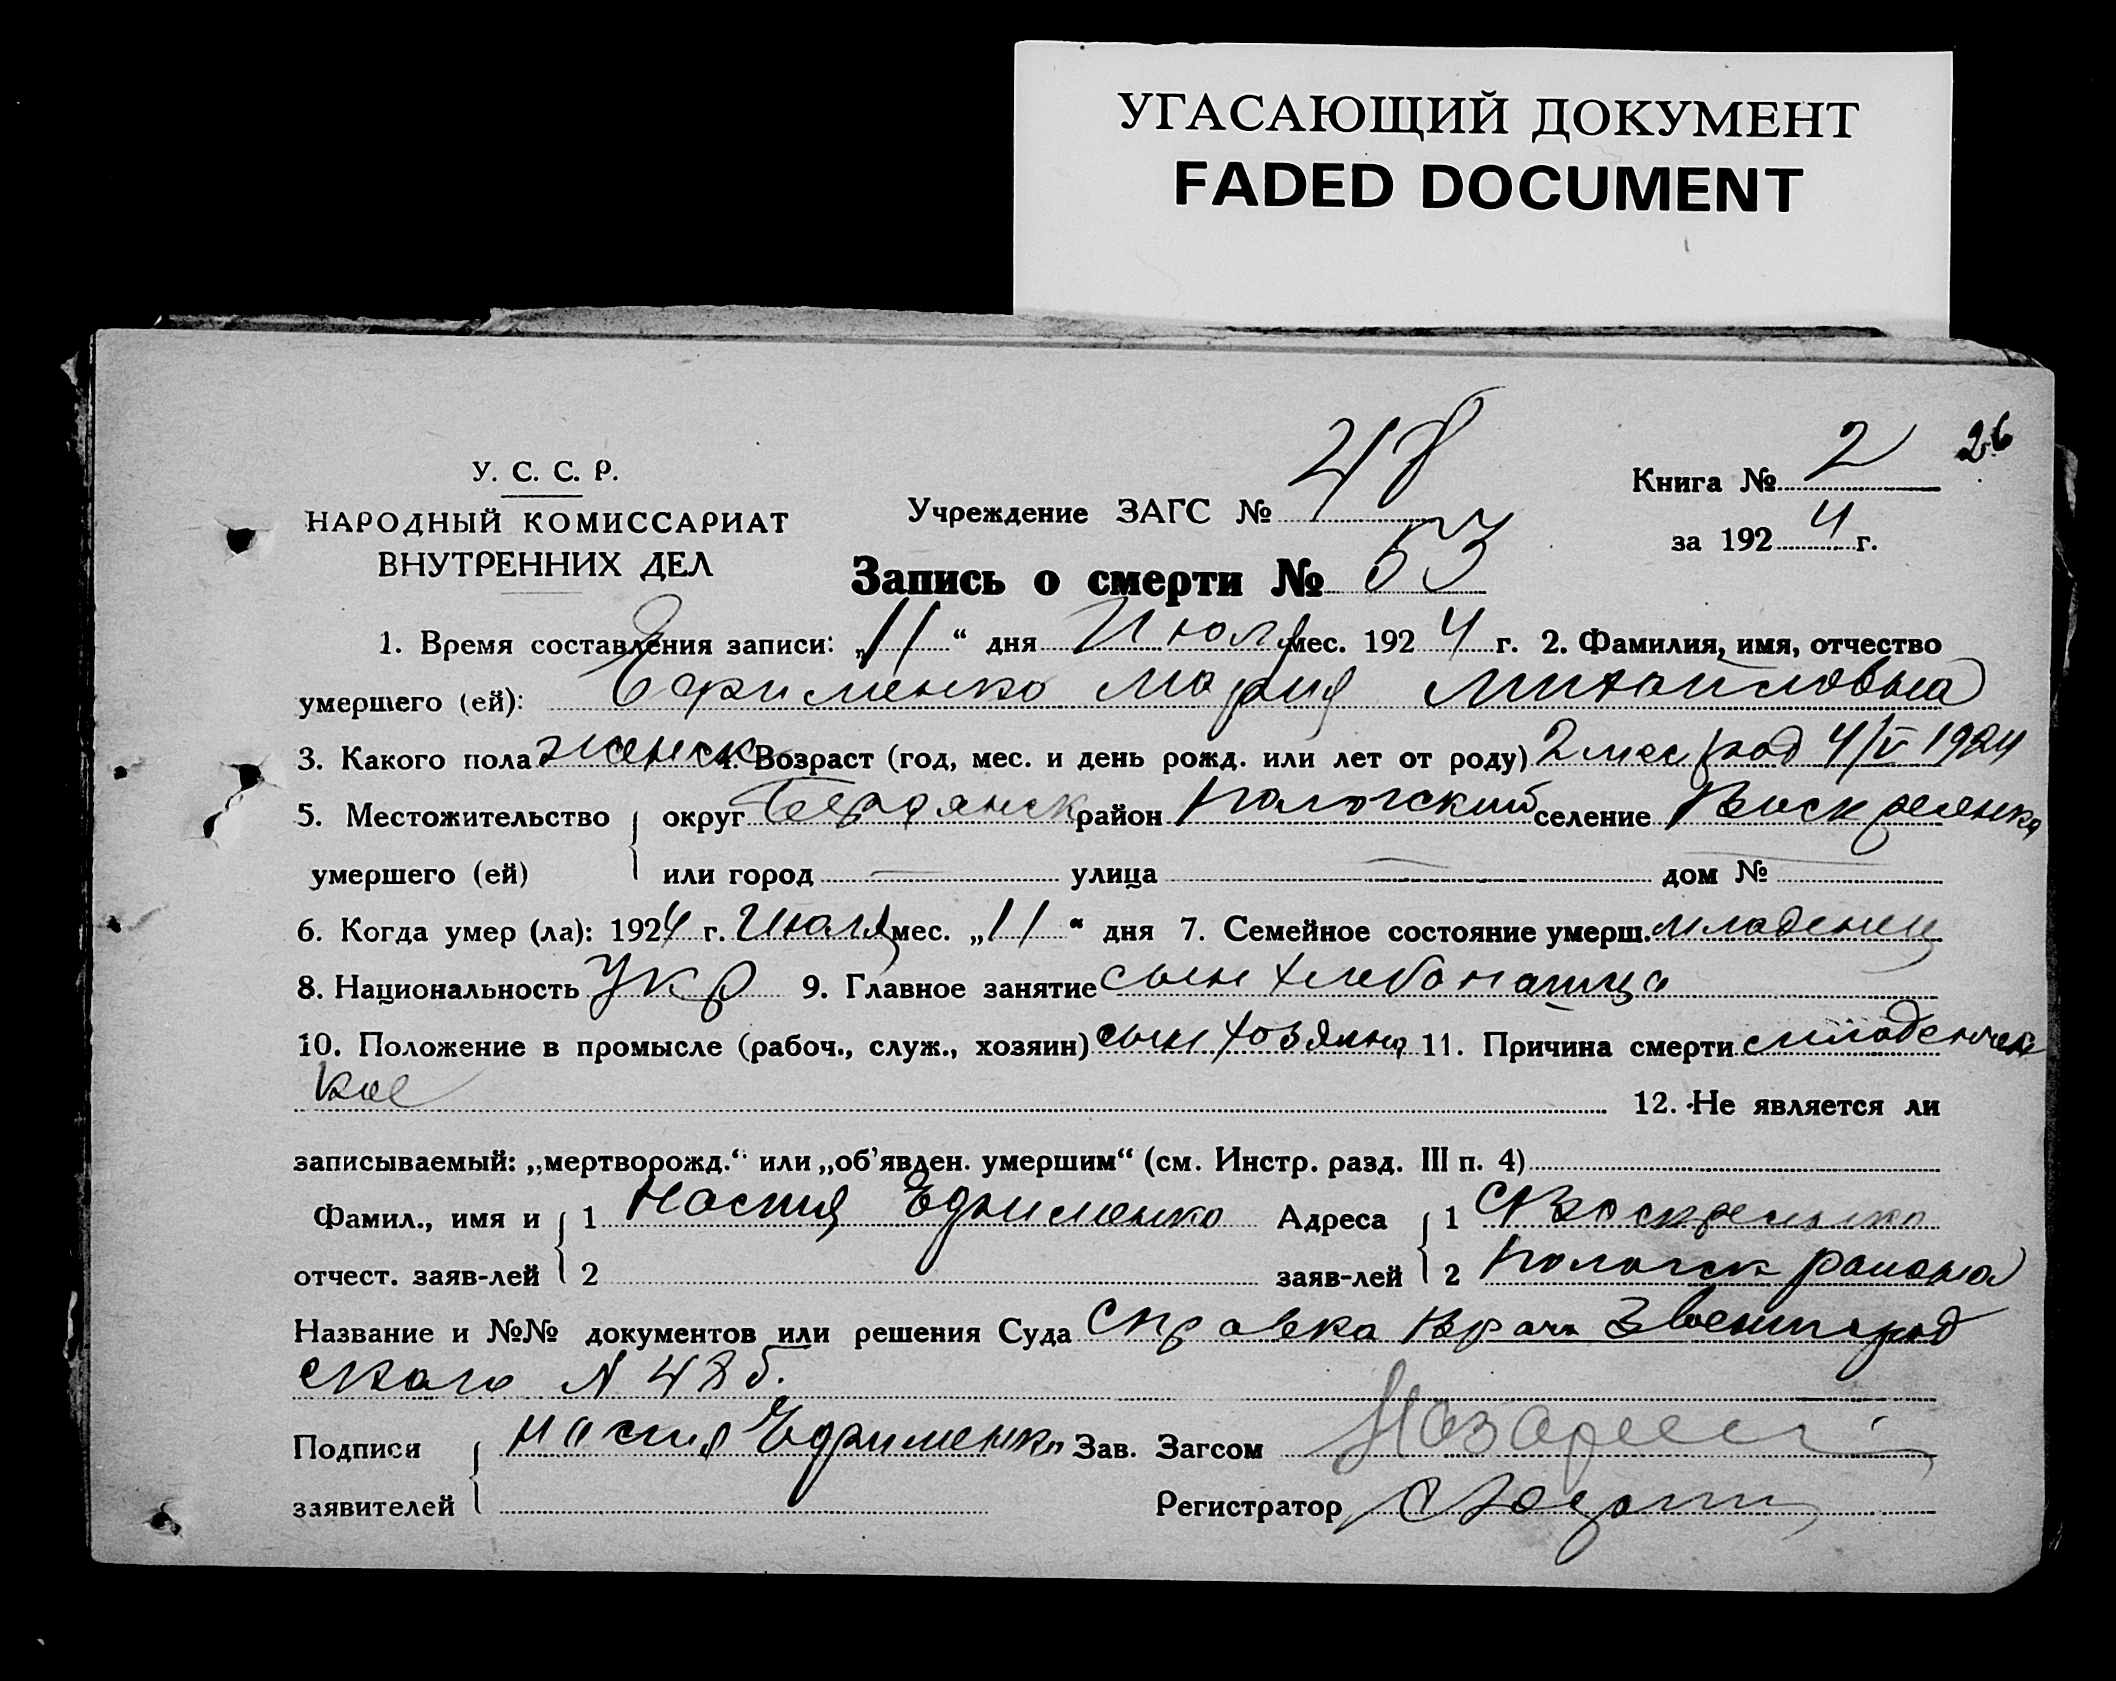 УГАСАЮЩИЙ ДОКУМЕНТ
FADED DOCUMENT
26
У. С. С. Р.
НАРОДНЫЙ КОМИССАРИАТ
ВНУТРЕННИХ ДЕЛ
Учреждение ЗАГС № 48
Книга № 2
за 1924 г.
Запись о смерти № 53
1. Время составления записи: „11“ дня Июля мес. 1924 г. 2. Фамилия, имя, отчество
умершего (ей): Ефименко Мария Михайловна
3. Какого пола женск 4. Возраст (год, мес. и день рожд. или лет от роду) 2 мес рож 4/V 1924
5. Местожительство округ Бердянск район Пологский селение Воскресенка
умершего (ей) или город — улица — дом № —
6. Когда умер (ла): 1924 г. Июля мес. „11“ дня 7. Семейное состояние умерш. младенец
8. Национальность Укр 9. Главное занятие сын хлебопашца
10. Положение в промысле (рабоч., служ., хозяин) сын хозяина 11. Причина смерти младенчес
кое
12. Не является ли
записываемый: „мертворожд.“ или „об'явлен. умершим“ (см. Инстр. разд. III п. 4)
Фамил., имя и 1 Настя Ефименко Адреса 1 с Воскресенка
отчест. заяв-лей 2 заяв-лей 2 Пологск района
Название и №№ документов или решения Суда Справка Врача Звенигород
ского N 485.
Подписи Настя Ефименко Зав. Загсом
заявителей Регистратор